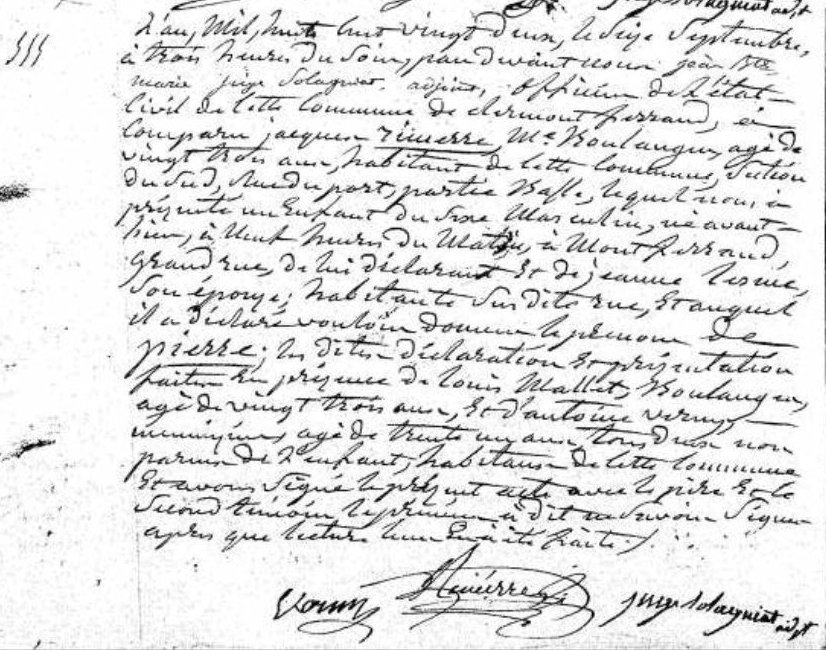 L'an, Mil, huit cent vingt deux, le seize Septembre,
à trois heures du Soir, pardevant nous jean Bte
marie juge Solagniat, adjoint, officier de L'état-
Civil de cette Commune de clermont ferrand, est
Comparu jacques, Me Boulanger, agé de
vingt trois ans, habitant de cette Commune, Section
du Sud, Rue du port, partie Basse, lequel nous à
présenté un Enfant du Sexe Masculin, né avant-
hier, à Neuf heures du Matin, à Montferrand,
grand rue, de lui déclarant Et de jeanne
Son épouse; habitante Susdite rue, Et auquel
il a déclaré vouloir donner le prénom de
pierre; les dites déclaration Et présentation
faites En présence de louis Mallet, Boulanger,
agé de vingt trois ans, Et d'antoine verny,
menuisier, agé de trente un ans, tous deux non
parens de L'enfant, habitans de cette Commune
Et avons Signé le présent acte avec le père Et le
Second témoin, le premier à dit ne Savoir Signer
après que lecture leur En à été faite ./.
juge Solagniat adjt